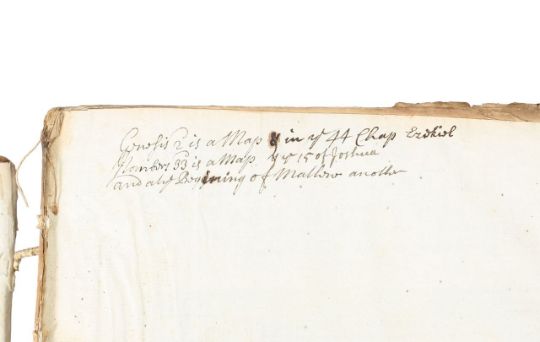 Genesis 2 is a Map & in yᵉ 44 Chap Ezekiel
Numbers 33 is a Map yᵉ 15 of Joshua
and at yᵉ Begining of Mathew another